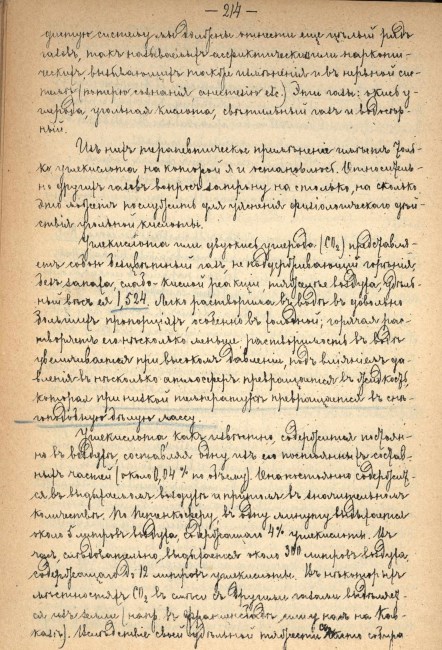 — 214 —
дитную систему мы должны отнести еще цѣлый рядъ
газовъ, такъ называемыхъ асфиктическихъ или наркоти-
ческихъ вызывающихъ также измѣненія и въ нервной сис-
темѣ (потерю сознанія анестезію etc.) Эти газы: окись у-
глерода, угольная кислота, свѣтильный газъ и водосѣр-
ный.
Изъ нихъ терапевтическое примѣненіе имѣетъ толь-
ко углекислота на которой я и остановлюсь. Относитель-
но другихъ газовъ вопросъ затрону на столько, на сколько
это можетъ послужить для уясненія физіологическаго дѣй-
ствія угольной кислоты.
Углекислота или двуокись углерода (CO₂) представля-
етъ собою безцвѣтный газъ, не поддерживающій горѣнія,
безъ запаха, слабо-кислой реакціи, тяжелѣе воздуха, удѣль-
ный вѣсъ ея 1,524. Легко растворима въ водѣ въ довольно
большихъ пропорціяхъ особенно въ холодной, горячая рас-
творяетъ его нѣсколько меньше, растворимость въ водѣ
увеличивается при высокомъ давленіи, подъ вліяніемъ да-
вленія въ нѣсколько атмосферъ превращается въ жидкость,
которая при низкой температурѣ превращается въ снѣ-
гоподобную бѣлую массу.
Углекислота какъ извѣстно, содержится постоян-
но въ воздухѣ, составляя одну изъ его постоянныхъ состав-
ныхъ частей (около 0,04 % по объему). Она постоянно содержит-
ся въ выдыхаемомъ воздухѣ и притомъ въ значительномъ
количествѣ. По въ одну минуту выдыхается
около 5 литровъ воздуха, содержащаго 4% углекислоты. Въ
часъ, слѣдовательно выдыхается около 300 литровъ воздуха,
содержащаго до 12 литровъ углекислоты. Въ нѣкоторыхъ
мѣстностяхъ CO₂ въ смѣси съ другими газами выдѣляет-
ся изъ земли (напр. въ у насъ на Кав-
казѣ). Вслѣдствіе своей удѣльной тяжести собира